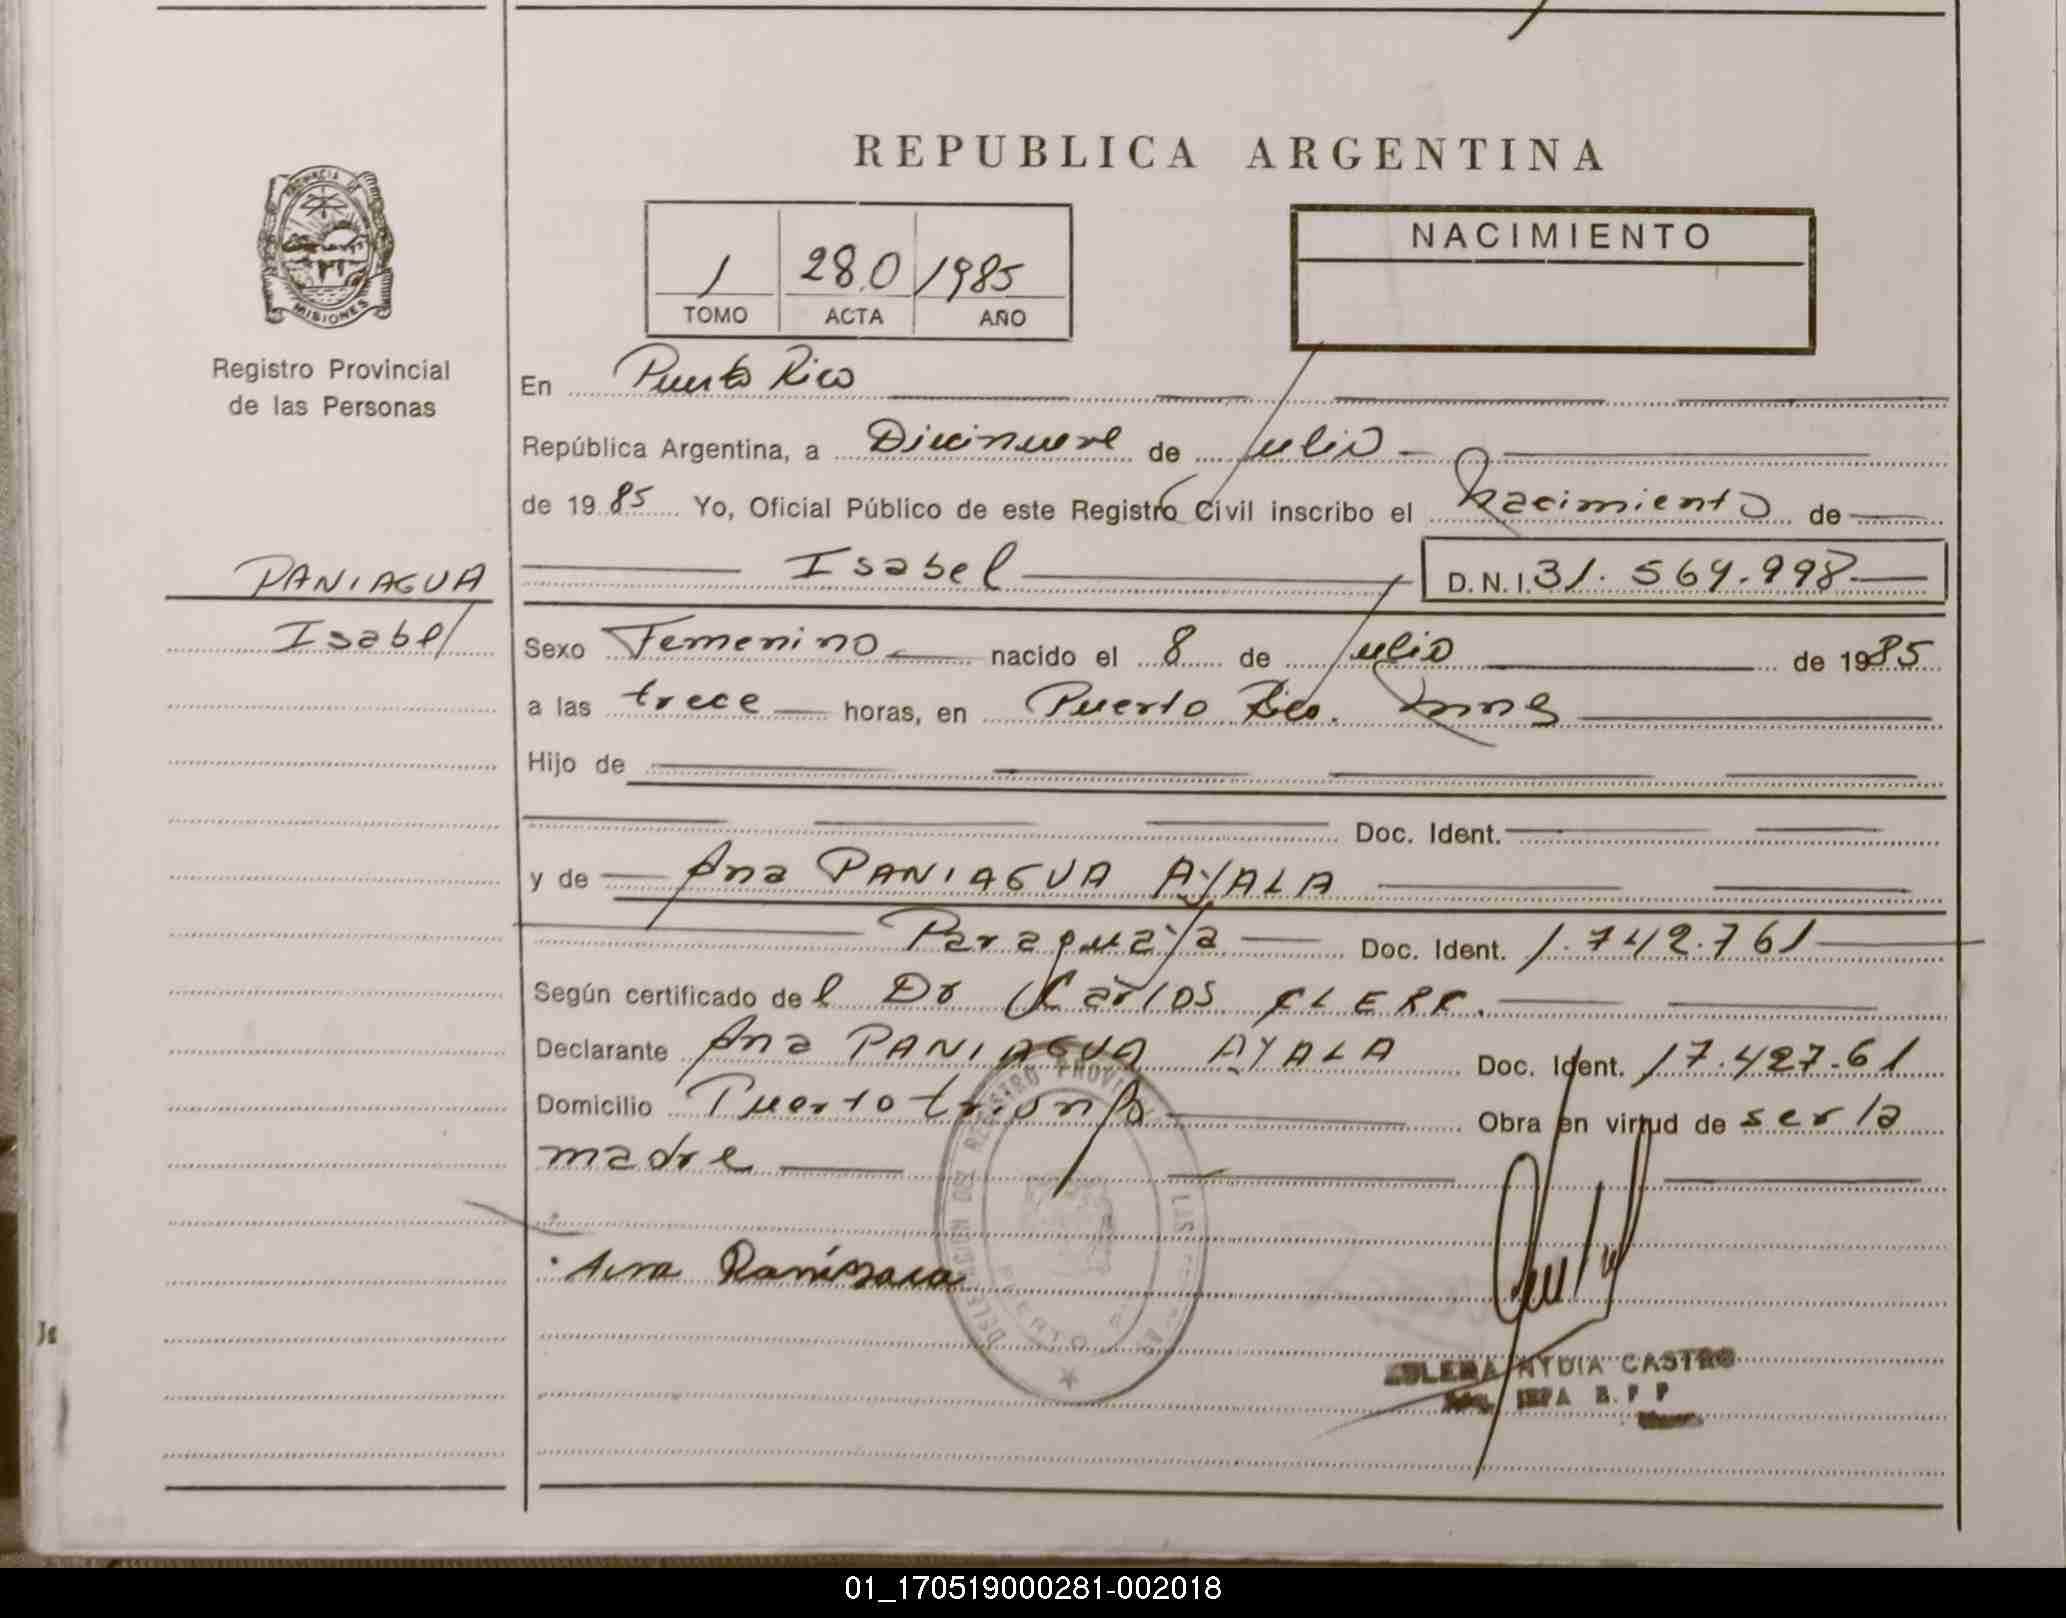 REPUBLICA ARGENTINA
PROVINCIA DE
MISIONES
Registro Provincial
de las Personas
1 280 1985
TOMO ACTA AÑO
NACIMIENTO
En Puerto Rico
República Argentina, a Diecinueve de Julio
de 1985 Yo, Oficial Público de este Registro Civil inscribo el Nacimiento de
PANIAGUA
Isabel
Isabel D.N.I. 31.569.998
Sexo Femenino nacido el 8 de Julio de 1985
a las trece horas, en Puerto Rico. Mnes
Hijo de
Doc. Ident.
y de Ana PANIAGUA AYALA
Paraguaya Doc. Ident. 1.742.761
Según certificado del Dr Carlos CLERC.
Declarante Ana PANIAGUA AYALA Doc. Ident. 17.427.61
Domicilio Puerto triunfo Obra en virtud de ser la
madre
DELEGACION DEL REGISTRO PROVI LAS
PUERTO
NYDIA CASTRO
01_170519000281-002018